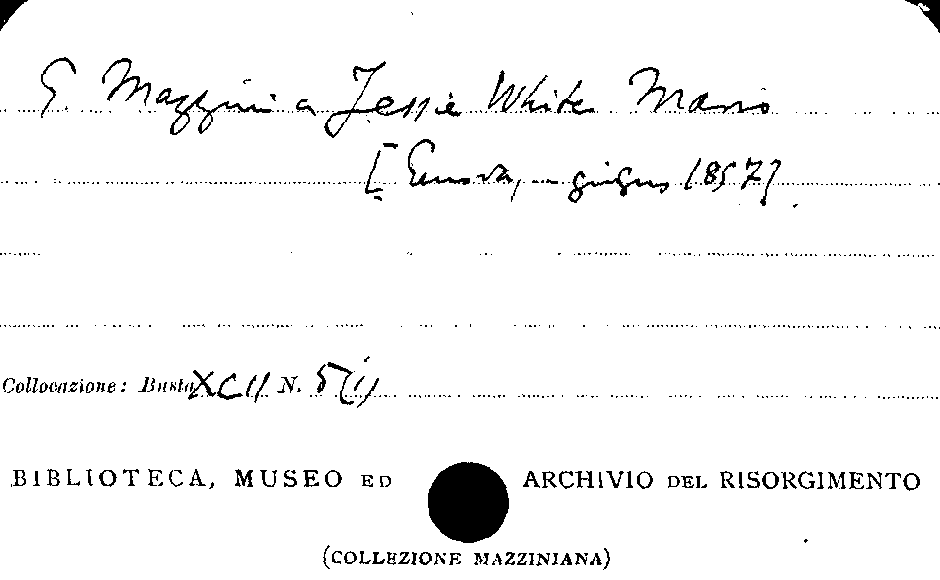 G. Mazzini a Jessie White Mario
[Genova, – giugno 1857].
Collocazione: Busta XCII N. 5(1)
BIBLIOTECA, MUSEO ED ARCHIVIO DEL RISORGIMENTO
(COLLEZIONE MAZZINIANA)